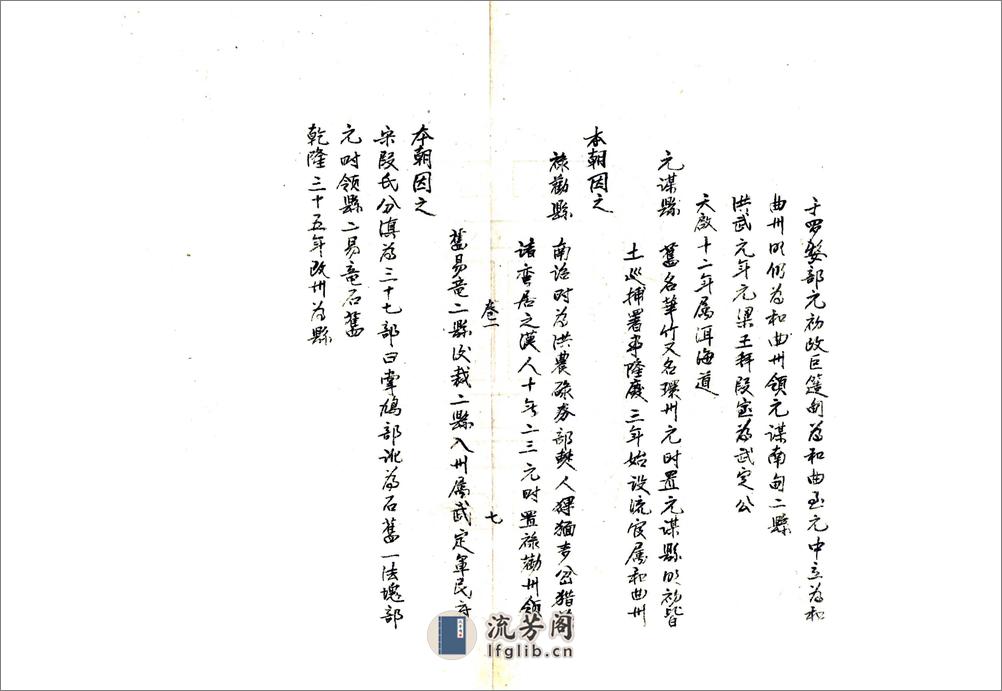 于罗婺部元初改巨篴甸为和曲至元中立为和
曲州明仍为和曲州领元谋南甸二縣
洪武元年元梁王拜段宝为武定公
天啟十二年属洱海道
元谋縣 舊名華竹又名環州元时置元谋縣明初皆
土巡捕署事隆慶三年始设流官属和曲州
本朝因之
禄勸縣 南诏时为洪農碌券部僰人猓
诸蛮居之漢人十年二三元时置禄勸州领
卷一
七
舊易竜二縣後裁二縣入州属武定軍民府
本朝因之
宋段氏分滇为三十七部曰掌鳩部讹为石舊一法塊部
元时领縣二易竜石舊
乾隆三十五年改州为縣
流芳阁
lfglib.cn